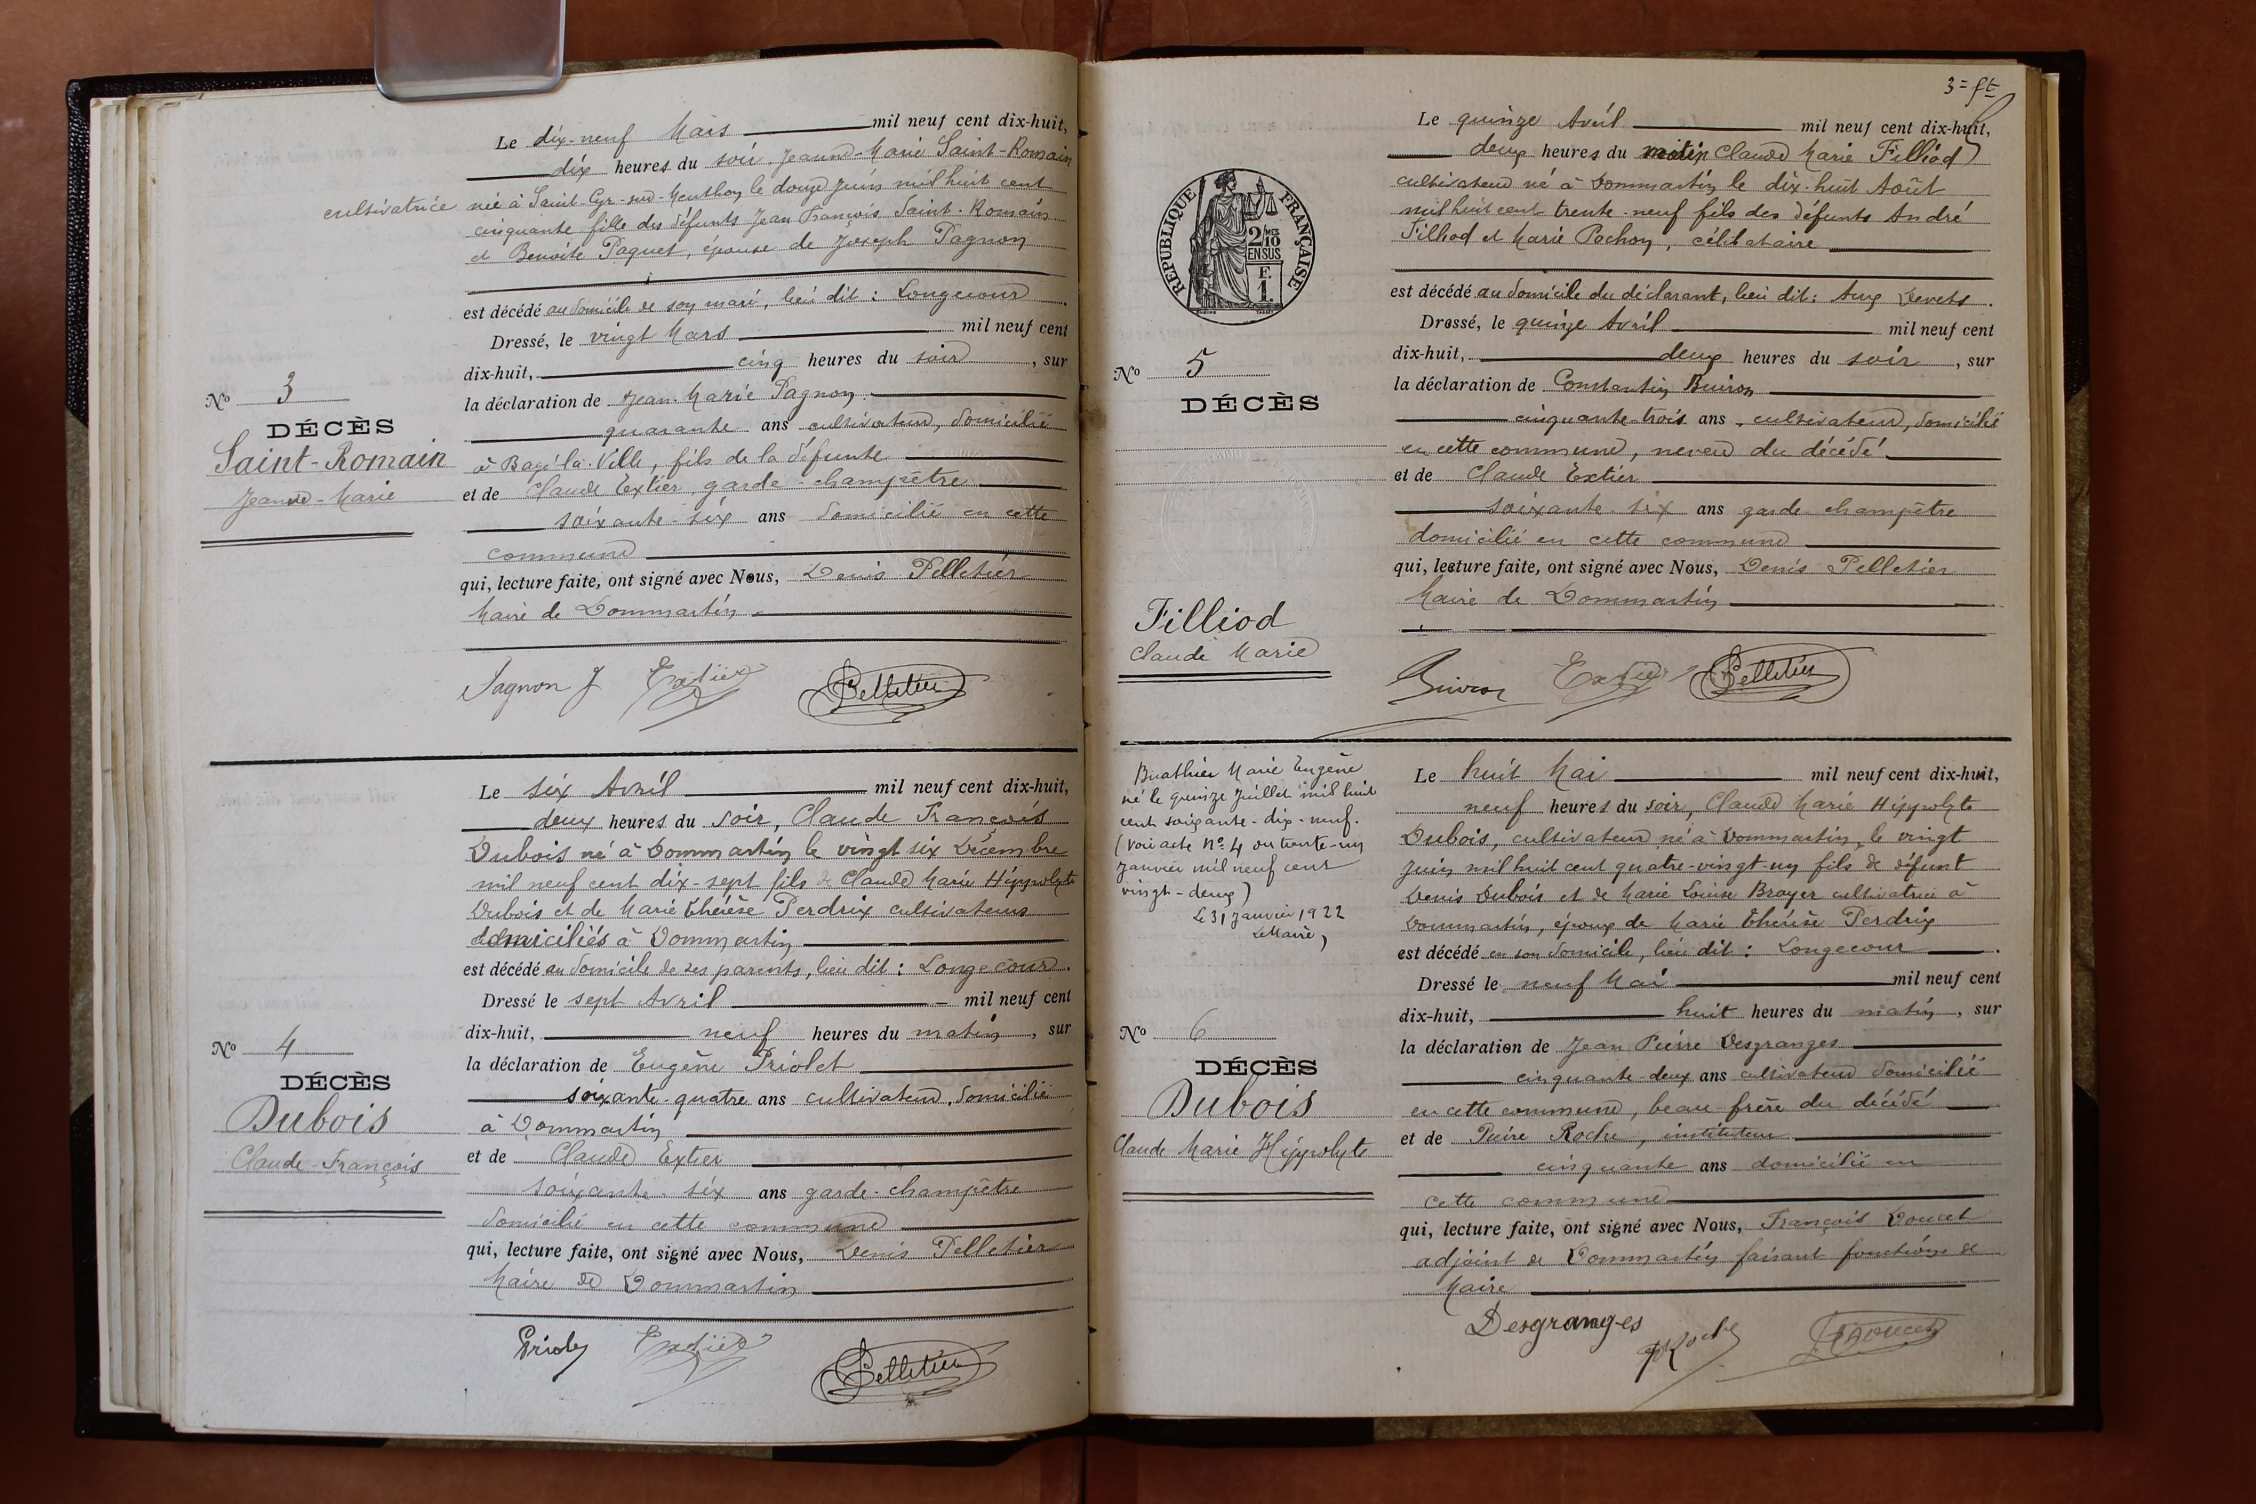 Le dix-neuf Mars mil neuf cent dix-huit,
dix heures du soir, Jeanne-Marie Saint-Romain
cultivatrice née à Saint-Cyr-sur-Menthon le douze Juin mil huit cent
cinquante fille des défunts Jean François Saint-Romain
et Benoite Paquet, épouse de Joseph Pagnon
est décédé au domicile de son mari, lieu dit : Longecour.
Dressé, le vingt Mars mil neuf cent
dix-huit, cinq heures du soir, sur
la déclaration de Jean-Marie Pagnon
quarante ans cultivateur, domicilié
à Bagé-la-Ville, fils de la défunte
et de Claude Extier, garde-champêtre
soixante-six ans domicilié en cette
commune
qui, lecture faite, ont signé avec Nous, Denis Pelletier
Maire de Dommartin
No 3
DÉCÈS
Saint-Romain
Jeanne-Marie
Pagnon J Extier Pelletier
Le six Avril mil neuf cent dix-huit,
deux heures du soir, Claude François
Dubois né à Dommartin le vingt six Décembre
mil neuf cent dix-sept fils de Claude Marie Hippolyte
Dubois et de Marie Thérèse Perdrix cultivateurs
domiciliés à Dommartin
est décédé au domicile de ses parents, lieu dit : Longecour.
Dressé le sept Avril mil neuf cent
dix-huit, neuf heures du matin, sur
la déclaration de Eugène Priolet
soixante-quatre ans cultivateur, domicilié
à Dommartin
et de Claude Extier
soixante-six ans garde-champêtre
domicilié en cette commune
qui, lecture faite, ont signé avec Nous, Denis Pelletier
Maire de Dommartin
No 4
DÉCÈS
Dubois
Claude-François
Extier Pelletier
3= ft
REPUBLIQUE FRANÇAISE
2/10 MES
EN SUS
F.
1.
Le quinze Avril mil neuf cent dix-huit,
deux heures du matin Claude Marie Filliod
cultivateur né à Dommartin le dix-huit Août
mil huit cent trente-neuf fils des défunts André
Filliod et Marie Pochon, célibataire
est décédé au domicile du déclarant, lieu dit : Aux Devets.
Dressé, le quinze Avril mil neuf cent
dix-huit, deux heures du soir, sur
la déclaration de Constantin Buiron
cinquante-trois ans, cultivateur, domicilié
en cette commune, neveu du décédé
et de Claude Extier
soixante-six ans garde-champêtre
domicilié en cette commune
qui, lecture faite, ont signé avec Nous, Denis Pelletier
Maire de Dommartin
No 5
DÉCÈS
Filliod
Claude Marie
Buiron Extier Pelletier
Buathier Marie Eugène
né le quinze Juillet mil huit
cent soixante-dix-neuf.
(voir acte No 4 du trente-un
Janvier mil neuf cent
vingt-deux)
Le 31 Janvier 1922
Le Maire,
Le huit Mai mil neuf cent dix-huit,
neuf heures du soir, Claude Marie Hippolyte
Dubois, cultivateur né à Dommartin le vingt
Juin mil huit cent quatre-vingt-un fils de défunt
Denis Dubois et de Marie Louise Broyer cultivatrice à
Dommartin, époux de Marie Thérèse Perdrix
est décédé en son domicile, lieu dit : Longecour.
Dressé le neuf Mai mil neuf cent
dix-huit, huit heures du matin, sur
la déclaration de Jean Pierre Desgranges
cinquante-deux ans cultivateur domicilié
en cette commune, beau frère du décédé
et de Pierre Roche, instituteur
cinquante ans domicilié en
cette commune
qui, lecture faite, ont signé avec Nous, François Doucet
adjoint de Dommartin faisant fonctions de
Maire
No 6
DÉCÈS
Dubois
Claude Marie Hippolyte
Desgranges Roche Doucet